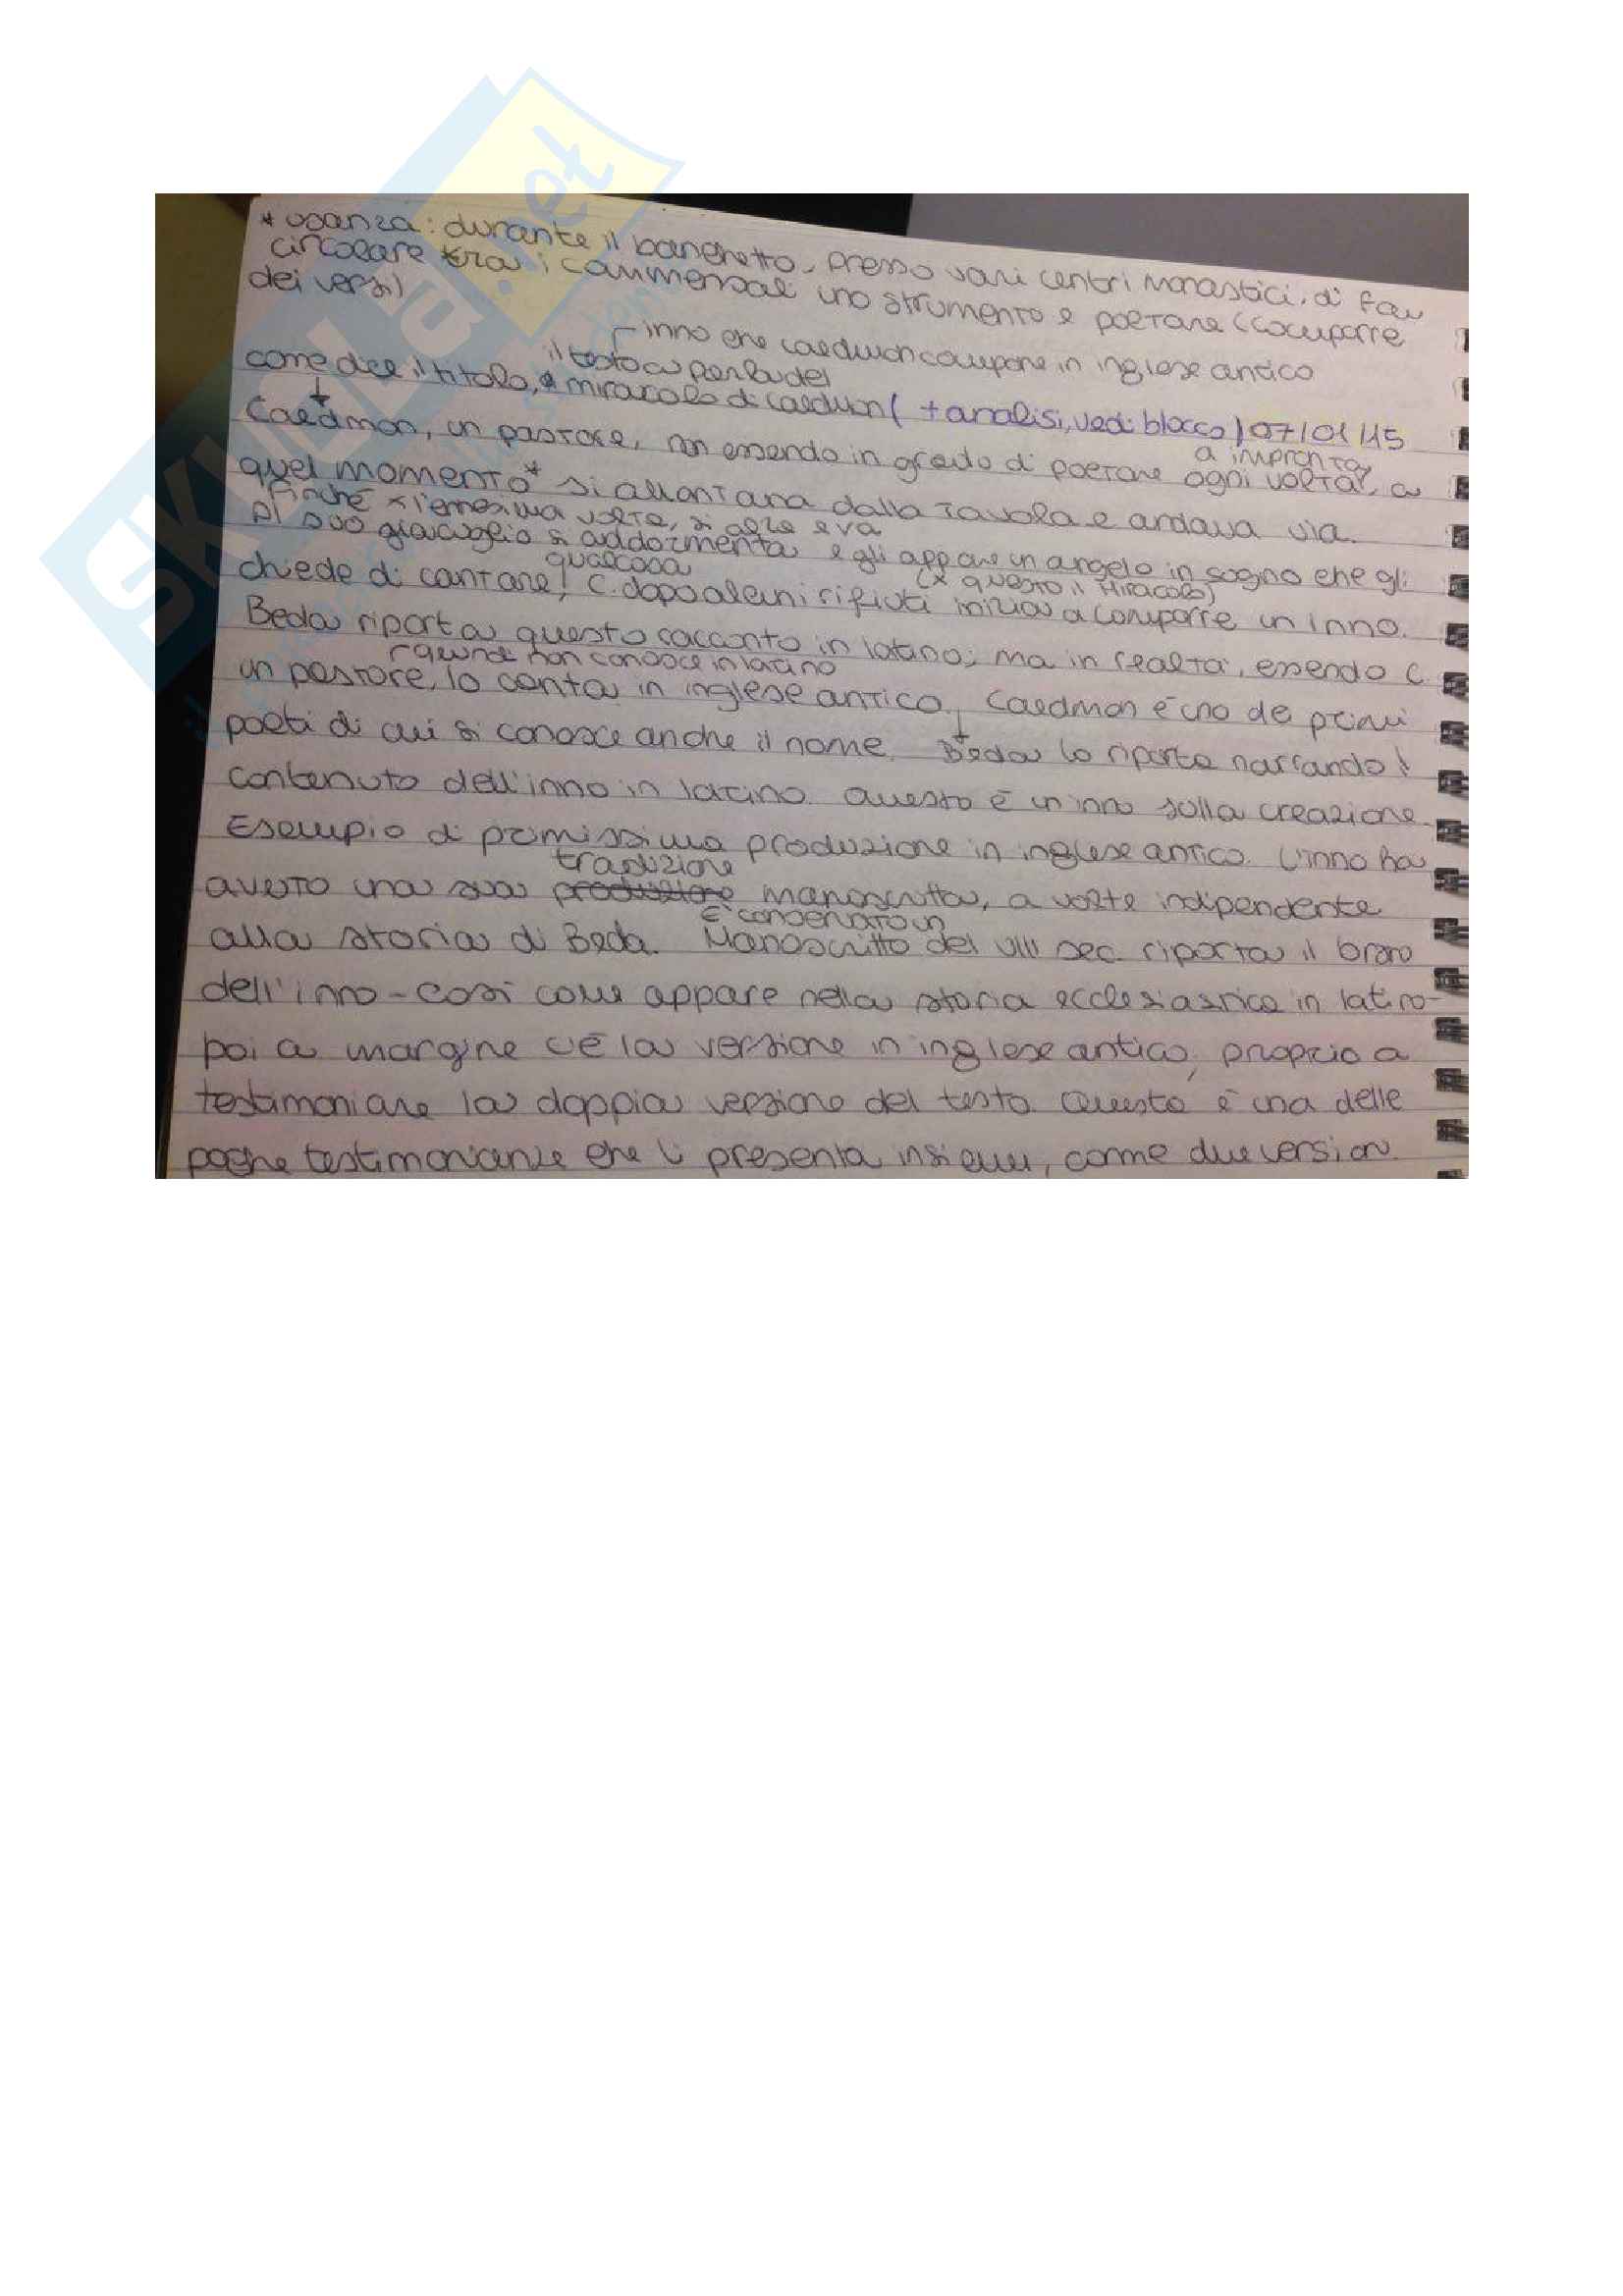 * usanza: durante il banchetto, presso vari centri monastici, di far
circolare tra i commensali uno strumento e poetare (comporre
dei versi)
inno che caedmon compone in inglese antico
il testo parla del
come dice il titolo, miracolo di caedmon ( + analisi, vedi blocco ) 07/01/15
Caedmon, un pastore, non essendo in grado di poetare ogni volta, a
a impronta
quel momento* si allontana dalla tavola e andava via.
finché x l'ennesima volta, si alza e va
al suo giaciglio si addormenta e gli appare un angelo in sogno che gli
qualcosa
(x questo il miracolo)
chiede di cantare! C. dopo alcuni rifiuti inizia a comporre un inno.
Beda riporta questo racconto in latino; ma in realtà, essendo C.
quindi non conosce in latino
un pastore, lo canta in inglese antico. Caedmon è uno dei primi
poeti di cui si conosce anche il nome. Beda lo riporta narrando il
contenuto dell'inno in latino. Questo è un inno sulla creazione.
Esempio di primissima produzione in inglese antico. L'inno ha
tradizione
avuto una sua produzione manoscritta, a volte indipendente
È conservato in
alla storia di Beda. Manoscritto del VIII sec. riporta il brano
dell'inno - così come appare nella storia ecclesiastica in latino -
poi a margine c'è la versione in inglese antico, proprio a
testimoniare la doppia versione del testo. Questo è una delle
poche testimonianze che li presenta insieme, come due version
SKUOLA.net